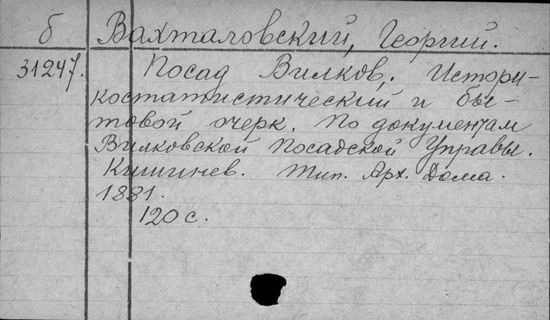 б Вахталовский, Георгий.
31247. Посад Вилков. Истори-
костатистический и бы-
товой очерк. По документам
Вилковской Посадской Управы.
Кишинев. Тип. Арх. Дома.
1881.
120 с.